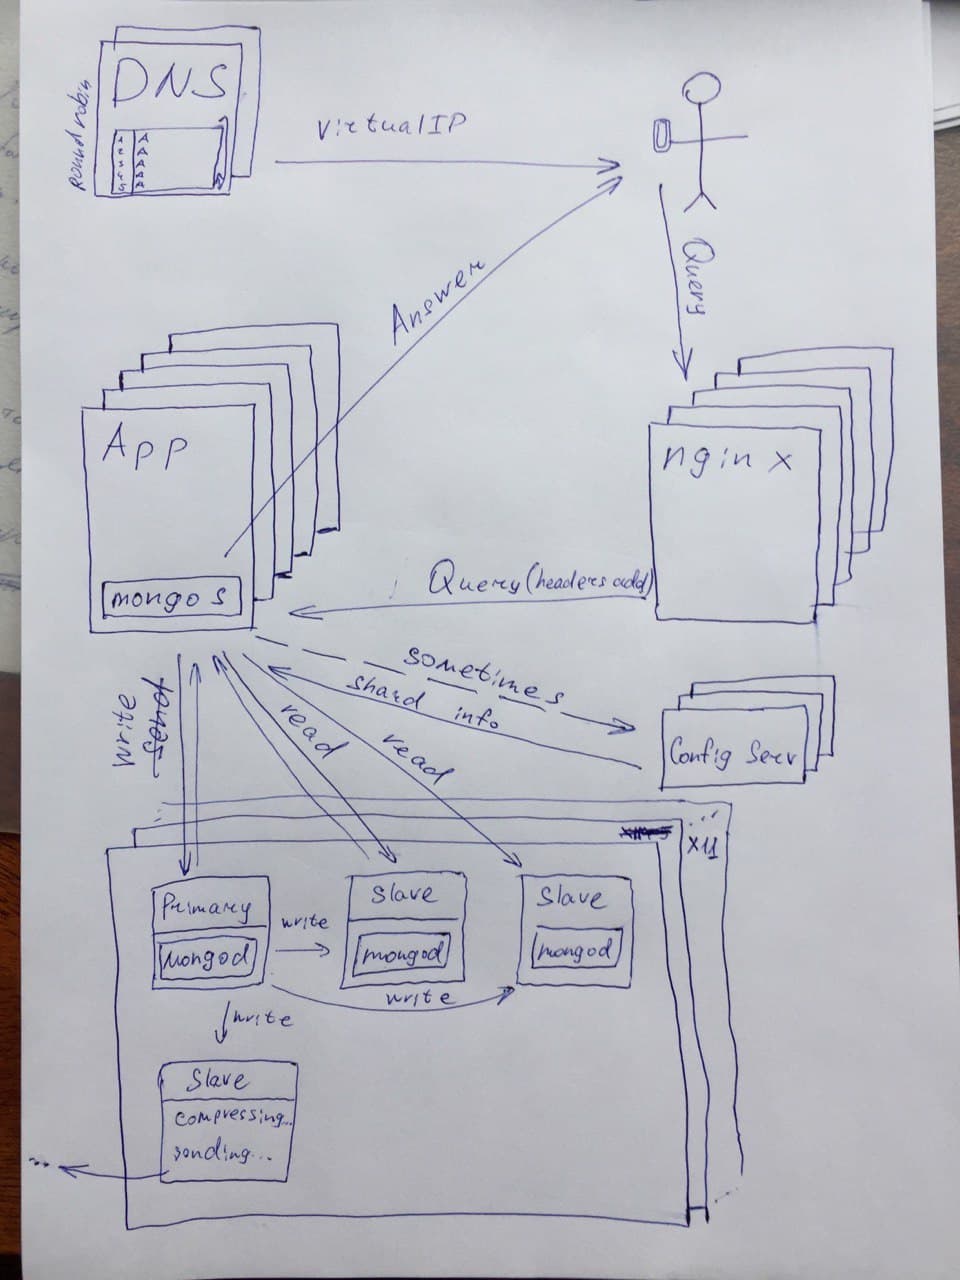 DNS
Round robin
A
A
A
A
A
virtual IP
Query
Answer
App
mongos
nginx
Query (headers add)
sometimes
shard info
Config Serv
write
send
read
read
x11
Primary
mongod
write
Slave
mongod
Slave
mongod
write
write
Slave
compressing...
sending...
...